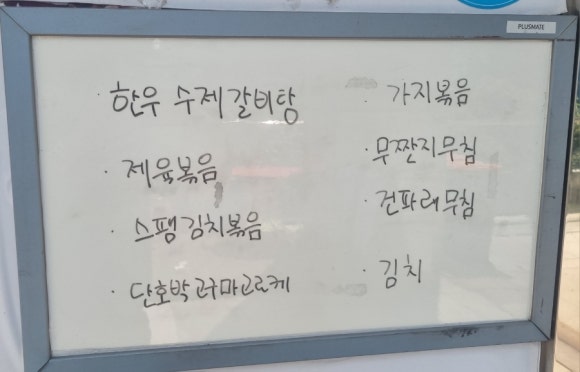 PLUSMATE
한우 수제갈비탕
· 제육볶음
· 스팸김치볶음
· 단호박고구마고로케
· 가지볶음
· 무짠지무침
· 건파래무침
· 김치